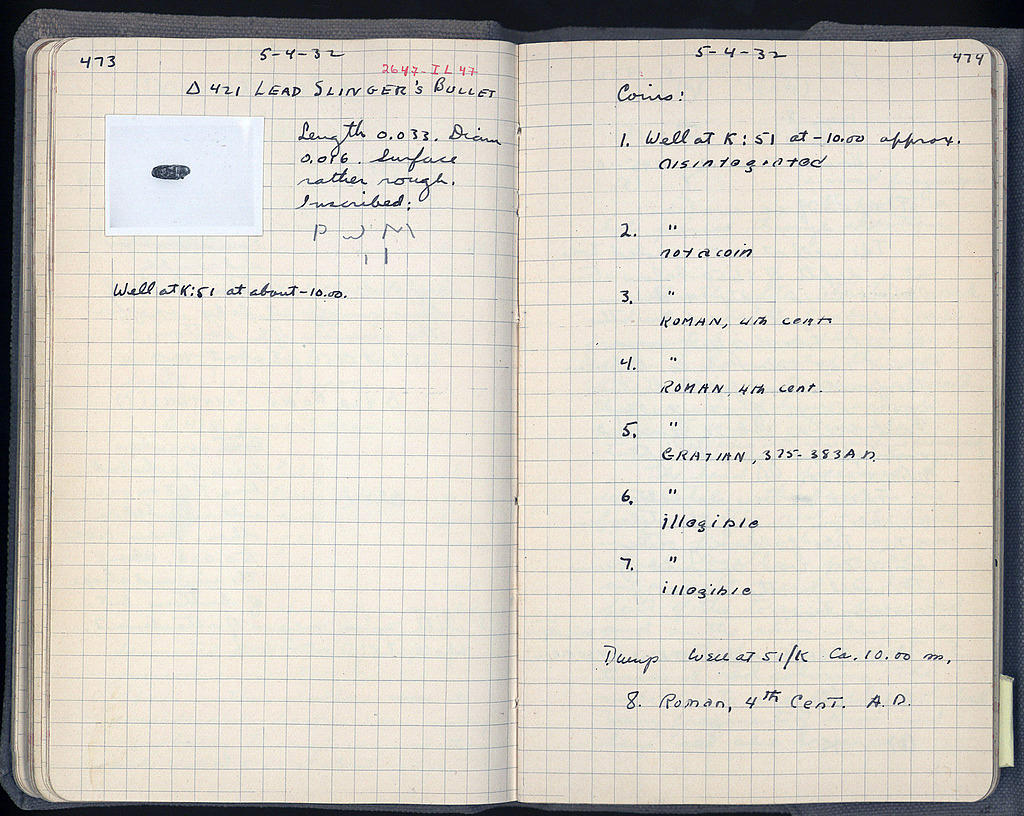 473
5-4-32
2647-IL47
Δ 421 LEAD SLINGER'S BULLET
Length 0.033. Diam
0.016. Surface
rather rough.
Inscribed:
Well at K:51 at about -10.00.
5-4-32
474
Coins:
1. Well at K:51 at -10.00 approx.
disintegrated
2. "
not a coin
3. "
ROMAN, 4th cent
4. "
ROMAN, 4th cent.
5. "
GRATIAN, 375-383 A.D.
6. "
illegible
7. "
illegible
Dump Well at 51/K Ca. 10.00 m.
8. Roman, 4th Cent. A.D.